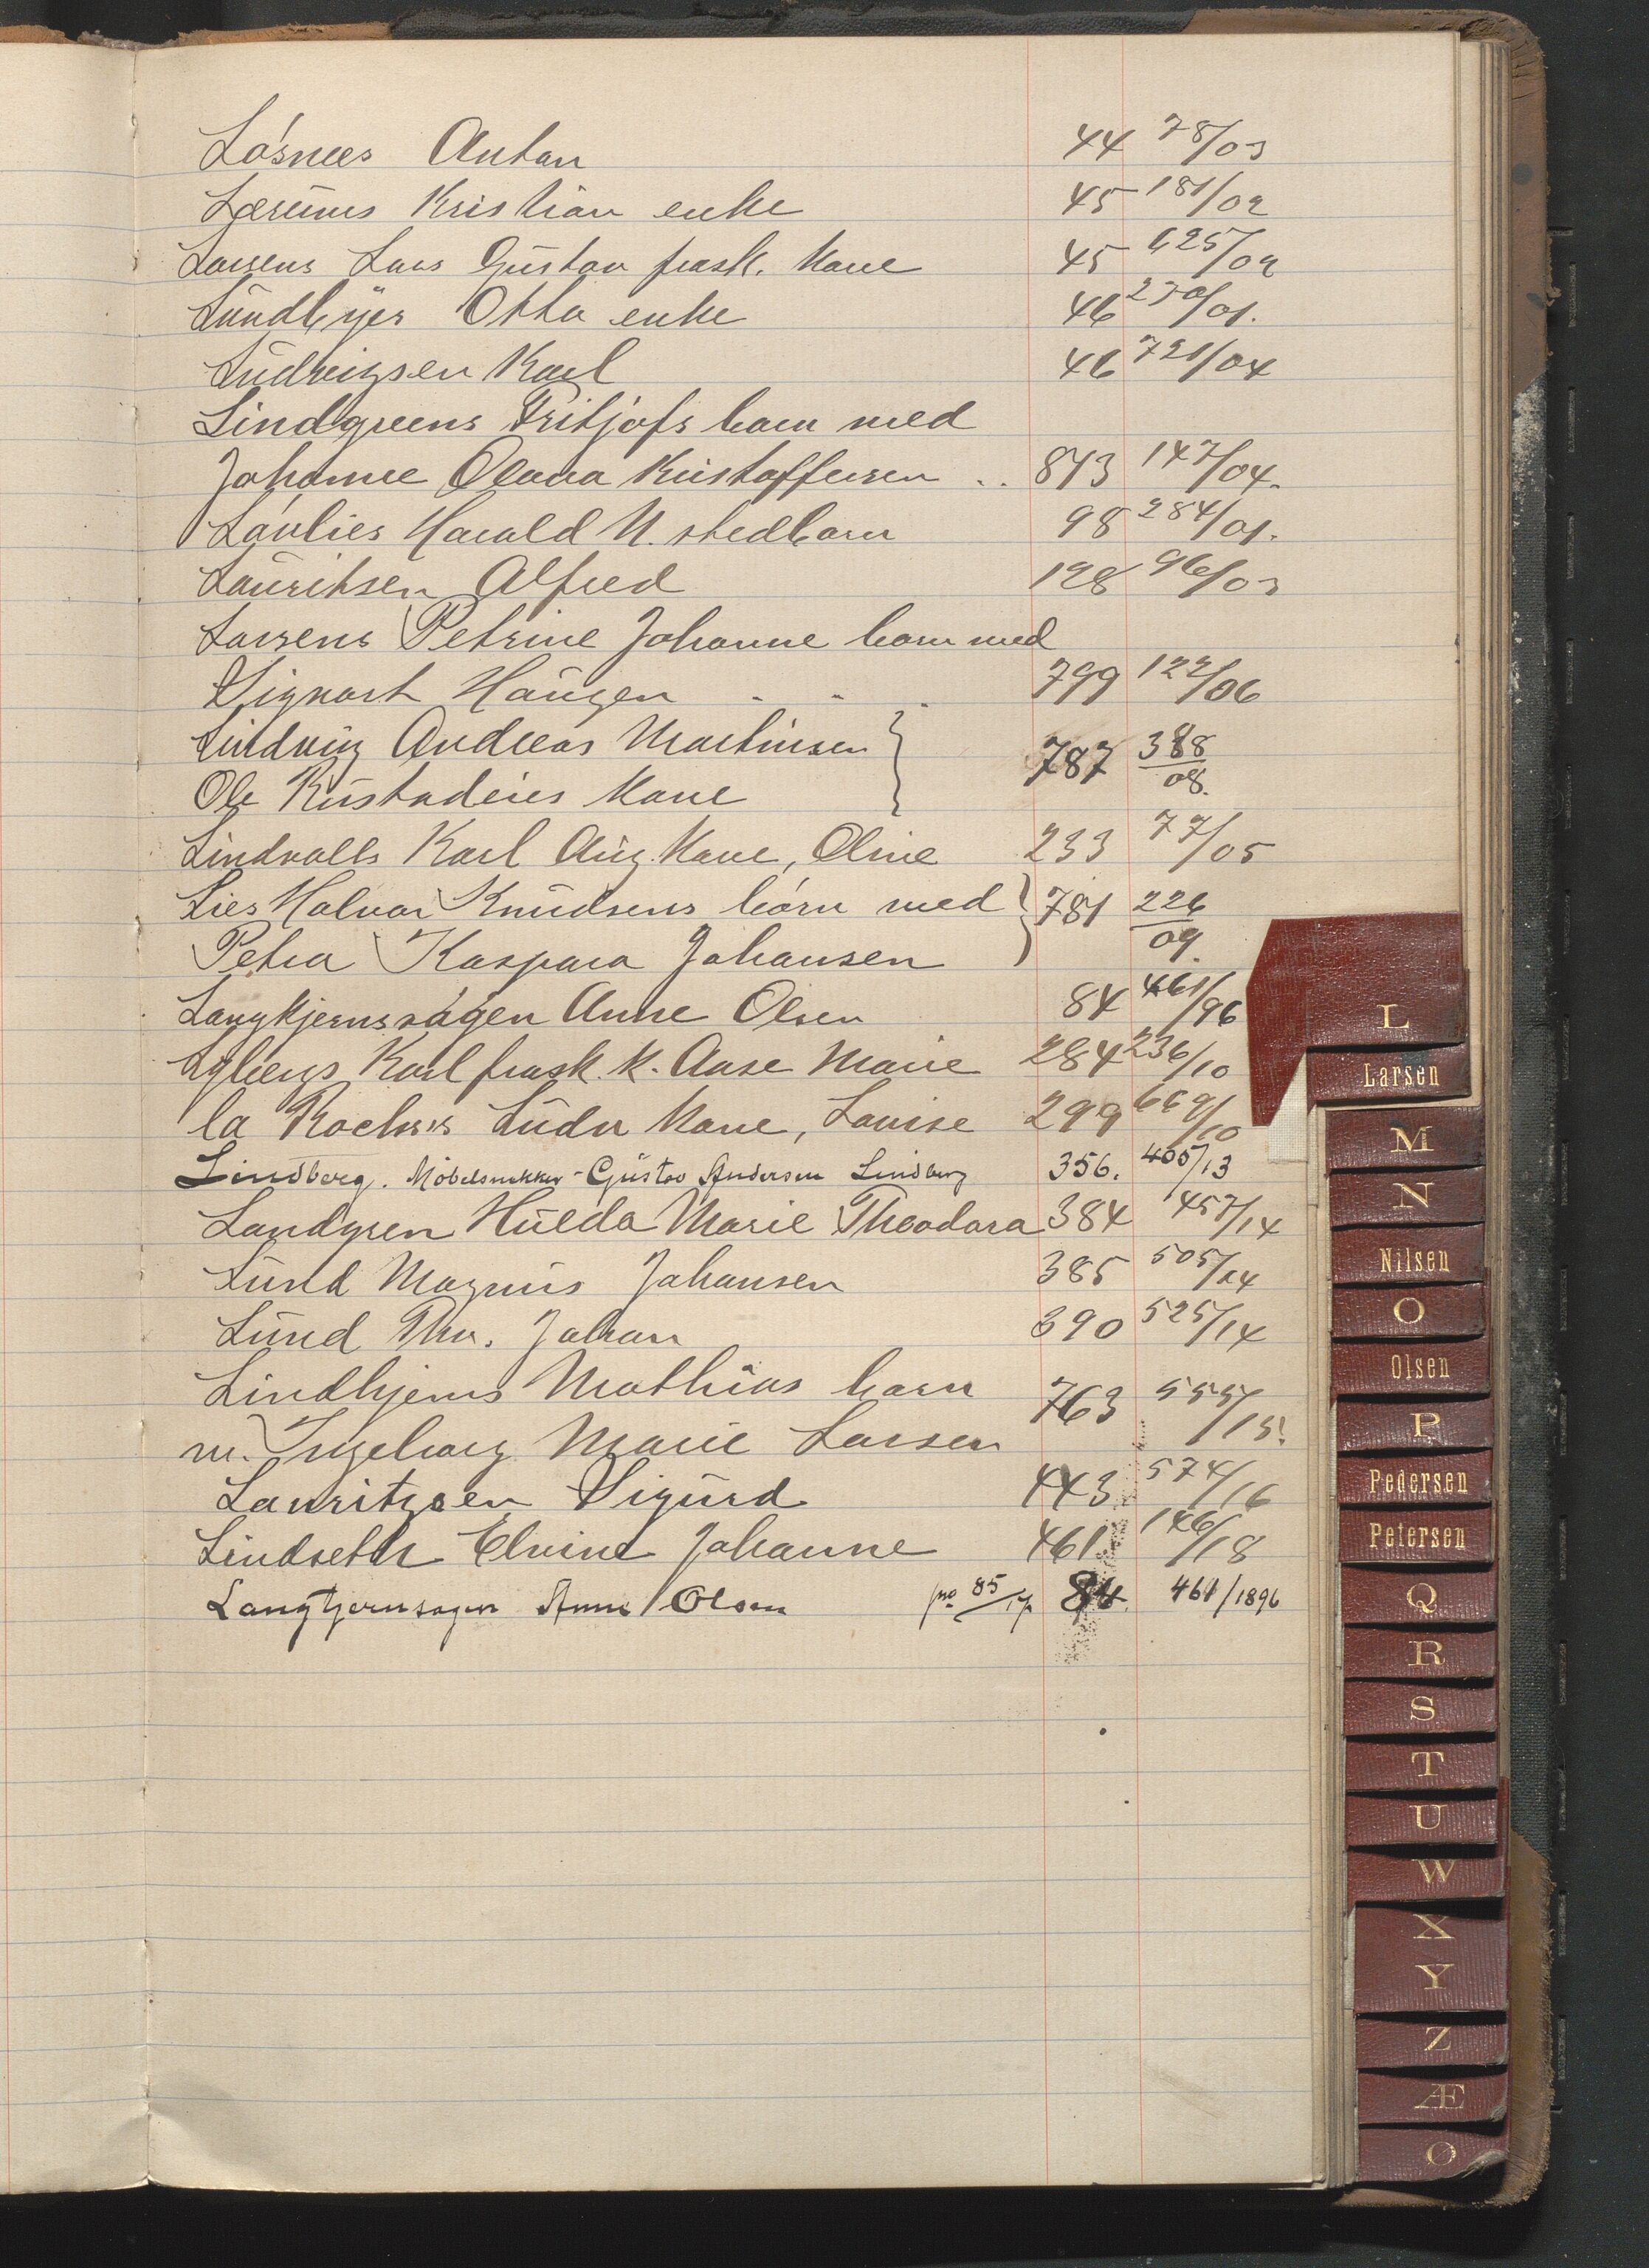 Løsnes Anton 44 78/03
Lærums Kristian enke 45 181/02
Larsens Lars Gustav frask. Kone 45 625/02
Lundbyes Otto enke 46 270/01.
Ludvigsen Karl 46 721/04
Lindgreens Fritjofs barn med
Johanne Olava Kristoffersen .. 873 147/04.
Løvlies Harald N. stedbarn 98 284/01.
Lauritsen Alfred 128 96/03
Larsens Petrine Johanne barn med
Signart Haugen 799 122/06
Ludvig Andreas Martinsen } 787 388/08.
Ole Kristadeies Kone
Lindvalls Karl Aug. Kone, Oline 233 77/05
Lies Halvor Knudsens børn med } 781 226/09.
Petra Kaspara Johansen
Langkjernsvagen Anne Olsen 84 461/96
Lybergs Karl frask. k. Aase Marie 284 236/10
la Roches Ludv. Kone, Louise 299 669/10
Lindberg. Møbelsnekker - Gustav Andersen Lindberg 356. 405/13
Landgren Hulda Marie Theodora 384 457/14
Lund Magnus Johansen 385 505/14
Lund Thv. Johan 390 525/14
Lindhjems Mathias barn 763 555/15.
m. Ingeborg Marie Larsen
Lauritzsen Sigurd 443 574/16
Lindseth Elvine Johanne 461. 146/18
Langtjernsagen Anne Olsen 85/17 84. 461/1896
L
Larsen
M
N
Nilsen
O
Olsen
P
Pedersen
Petersen
Q
R
S
T
U
W
X
Y
Z
Æ
Ø